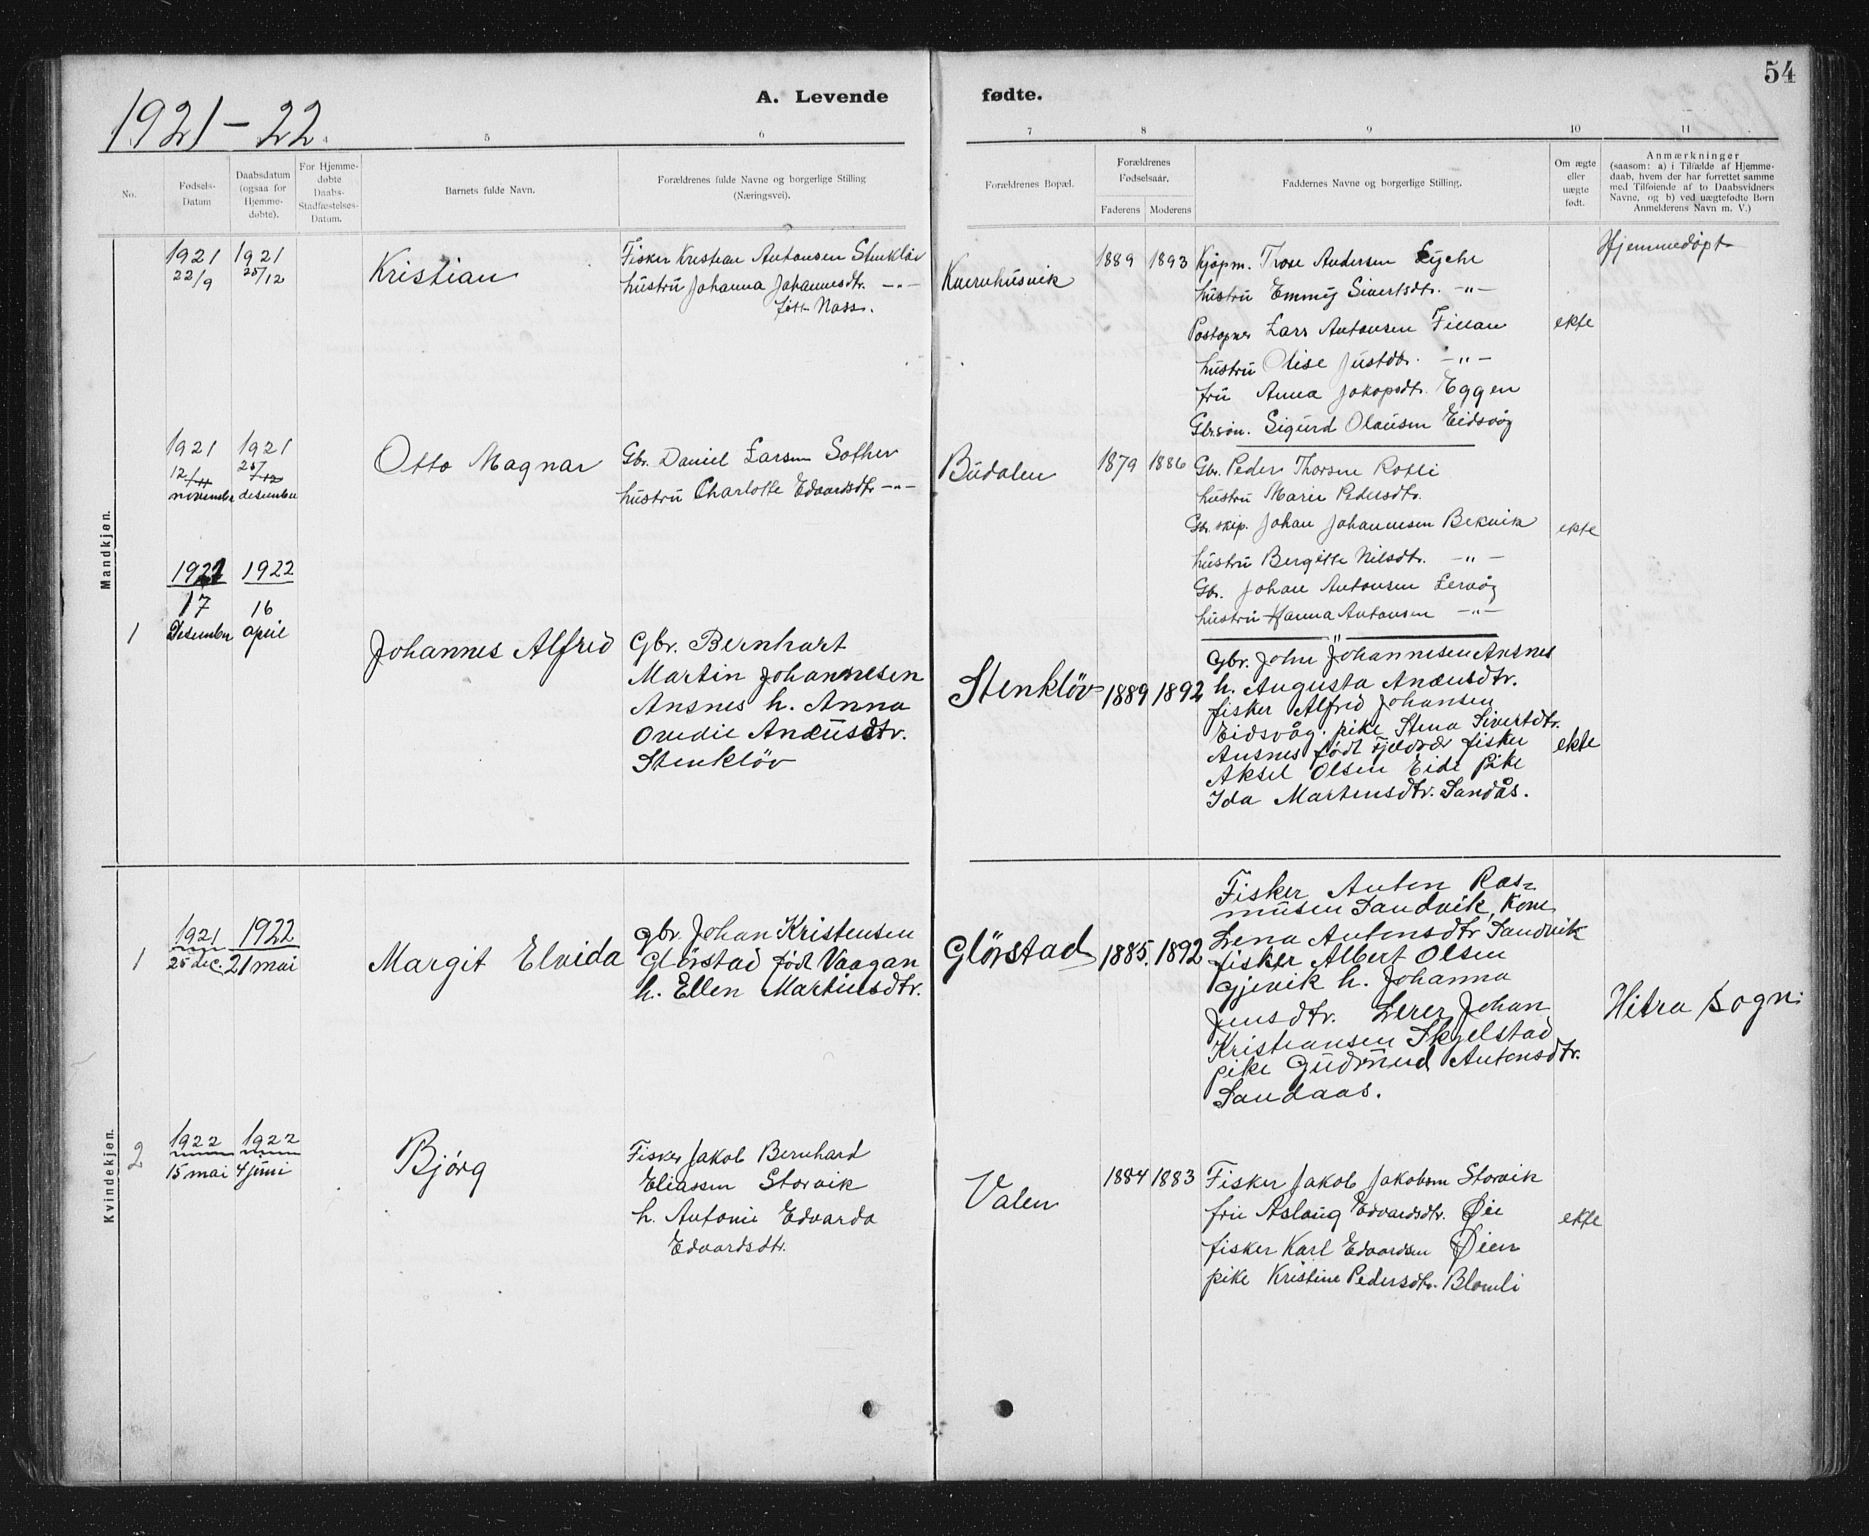 54
1921-22
A. Levende fødte.
4 5 6 7 8 9 10 11
No.
Fødsels-
Datum
Daabsdatum
(ogsaa for
Hjemme-
døbte).
For Hjemme-
døbte
Daabs-
Stadfæstelses-
Datum.
Barnets fulde Navn.
Forældrenes fulde Navne og borgerlige Stilling
(Næringsvei).
Forældrenes Bopæl.
Forældrenes
Fødselsaar.
Faderens
Moderens
Faddernes Navne og borgerlige Stilling.
Om ægte
eller
uægte
født.
Anmærkninger
(saasom: a) i Tilfælde af Hjemme-
daab, hvem der har forrettet samme
med Tilføiende af to Daabsvidners
Navne, og b) ved uægtefødte Børn
Anmelderens Navn m. V.)
Mandkjøn.
1921
22/9
1921
25/12
Kristian
Fisker Kristian Antonsen Stenkløv
hustru Johanna Johannesdtr. -"-
født Nass.
Kvernhusvik
1889
1893
Kjøpm. Andersen Lyche
hustru Emmy Sivertsdtr. -"-
Postopner Lars Antonsen Fillan
hustru Olise Justdtr. -"-
fru Anna Jakopsdtr. Eggen
Gbr.søn. Sigurd Olausen Eidsvåg
ekte
Hjemmedøpt
1921
12/11
november
1921
25/12
desember
Otto Magnar
Gbr. Daniel Larsen
hustru Charlotte Edvardsdtr -"-
Budalen
1879
1886
Gbr. Peder Thorsen
hustru Marie Pedersdtr.
Gbr. skip. Johan Johannesen Bekvik
hustru Bergitte Nilsdtr. -"-
Gbr. Johan Antonsen Lervåg
hustru Hanna Antonsen -"-
ekte
1
1921
17
Desember
1922
16
april
Johannes Alfred
Gbr. Bernhart
Martin Johannesen
Ansnes h. Anna
Ovedie Andeusdtr.
Stenkløv
Stenkløv
1889
1892
"
Gbr. John Johannesen Ansnes
h. Augusta Andeusdtr.
fisker Alfred Johansen
Eidsvåg. pike Stena Sivertdtr.
Ansnes født fisker
Aksel Olsen Eide pike
Ida Martensdtr. Sandås.
ekte
Kvindekjøn.
1
1921
25 dec.
1922
21 mai
Margit Elvida
Gbr. Johan Kristensen
Glørstad født Vaagan
h. Ellen Martinsdtr.
Glørstad
1885.
1892
Fisker Anton Ras-
musen Sandvik, Kone
Lena Antonsdtr Sandvik
fisker Albert Olsen
Gjevik h. Johanna
Jensdtr. Lerer Johan
Kristiansen Skjelstad
pike Gudrund Antonsdtr.
Sandaas.
Hitra sogn:
2
1922
15 mai
1922
4 juni
Bjørg
Fisker Jakob Bernhard
Eliassen Storvik
h. Antonie Edvarda
Edvardsdtr.
Valen
1884
1883
Fisker Jakob Jakobsen Storvik
fru Aslaug Edvardsdtr. Øie
fisker Karl Edvardsen Øien
pike Kristine Pedersdtr. Blomli
ekte